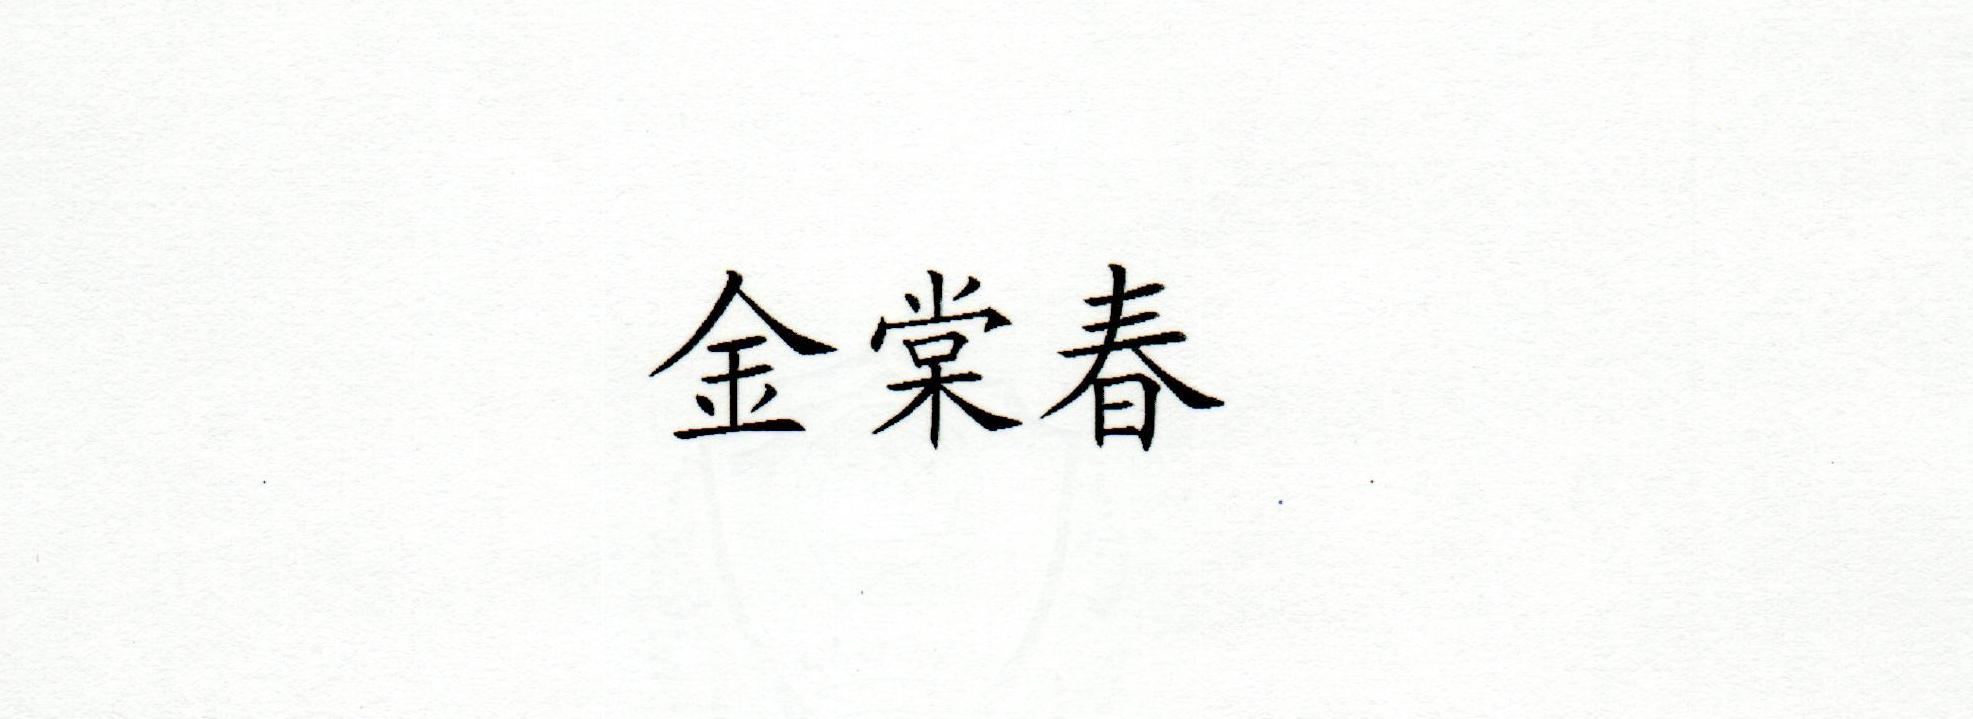 金棠春